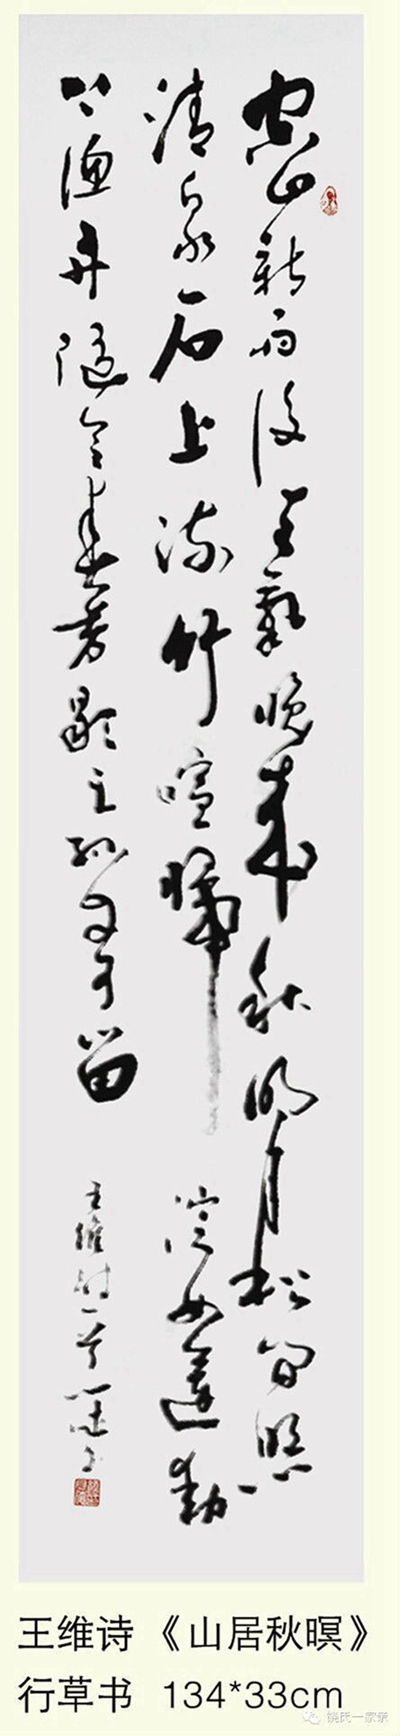 空山新雨後天氣晚来秋明月松间照
清泉石上流竹喧歸浣女蓮動
下漁舟隨意春芳歇王孫自可留
王維诗一首
王维诗《山居秋暝》
行草书 134*33cm
饶氏一家亲